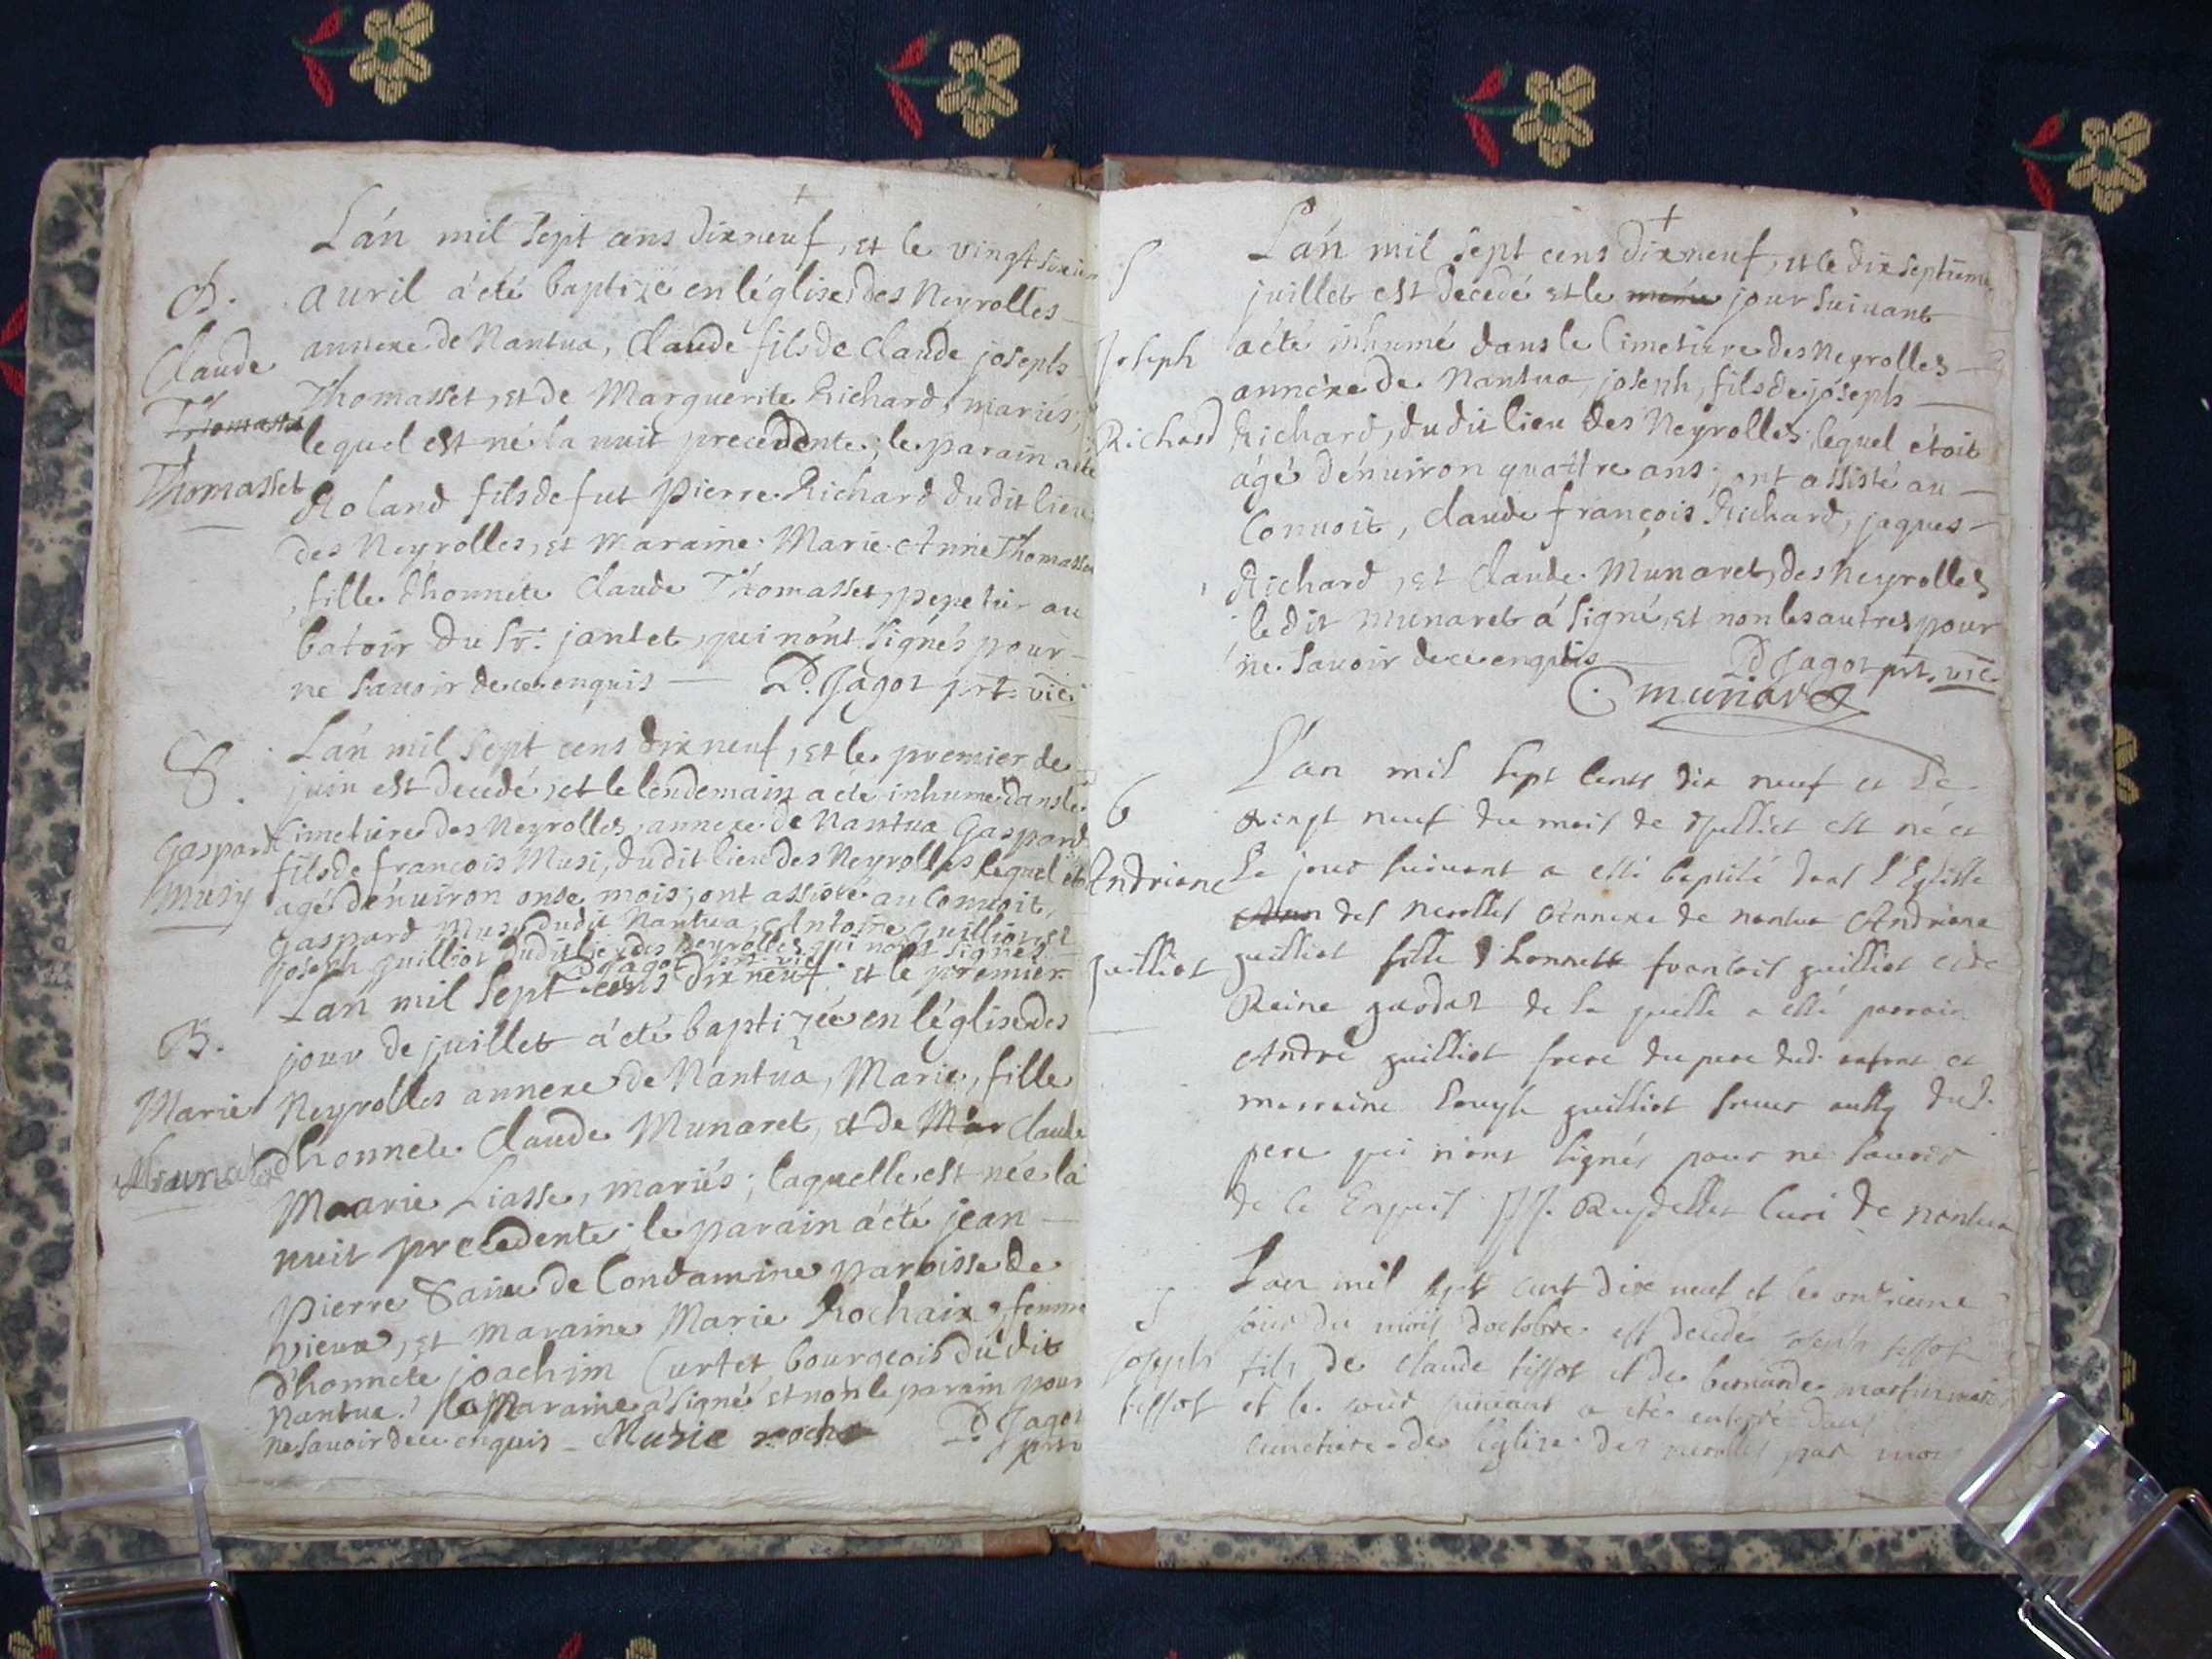 B.
Claude
Thomasset
Thomasset
L'an mil sept cens dix neuf, et le vingt sixiem
avril a été baptizé en l'église des Neyrolles
annexe de Nantua, Claude fils de Claude joseph
Thomasset, et de Marguerite Richard, mariés,
lequel est né la nuit precedente; le parain a été
Roland fils de fut pierre Richard du dit lieu
des Neyrolles, et maraine Marie Anne Thomasset
, fille d'honnete Claude Thomasset, papetier au
batoir du Sr. jantet, qui n'ont signés pour
ne savoir de ce enquis — D. Jagot prt. vic.
S.
Gaspard
musy
L'an mil sept cens dix neuf, et le premier de
juin est decedé, et le lendemain a été inhumé dans le
Cimetiere des Neyrolles, annexe de Nantua Gaspard
fils de francois Musi, du dit lieu des Neyrolles lequel
agé d'environ onse mois; ont assisté au Convoit,
Gaspard Musi du dit Nantua, Antoine guilliot, et
joseph guilliot du dit lieu des Neyrolles qui n'ont signés
D. Jagot prt. vic.
B.
Marie
Munaret
L'an mil sept cens dix neuf, et le premier
jour de juillet a été baptizée en l'église des
Neyrolles annexe de Nantua, Marie, fille
d'honnete Claude Munaret, et de Mar Claude
Maarie Liasse, mariés; laquelle est née la
nuit precedente; le parain a été jean
pierre de Condamine paroisse de
vieux, et maraine Marie Rochaix, femme
d'honnete joachim Curtet bourgeois du dit
Nantua. la Maraine a signé et non le parain pour
ne savoir de ce enquis — Marie roche D. Jagot
prt. v
S
Joseph
Richard
L'an mil sept cens dix neuf, et le dix septieme
juillet est decedé et le meme jour suivant
a été inhumé dans le Cimetiere des Neyrolles
annexe de Nantua, joseph, fils de joseph
Richard, du dit lieu des Neyrolles, lequel étoit
agé d'environ quattre ans; ont assisté au
Convoit, Claude françois Richard, jaques
Richard, et Claude Munaret, des Neyrolles
le dit Munaret a signé, et non les autres pour
ne savoir de ce enquis D. Jagot prt. vic.
C munaret
6
Andriane
guilliot
L'an mil sept cents dix neuf et le
vingt neuf du mois de Julliet est né et
le jour suivant a esté baptisé dans l'Eglisse
des Nerolles Annexe de nantua Andriane
guilliot fille d'honneste francois guilliot et de
Reine gardat de la quelle a esté parrain
Andre guilliot frere du pere dud. enfant et
marraine Louyse guilliot soeur aussy dud.
pere qui n'ont signés pour ne savoir
de ce Enquis JJ. Ruydellet Curé de nantua
S
joseph
tissot
L'an mil sept cent dix neuf et le onzieme
jour du mois d'octobre est decede joseph tissot
fils de claude tissot et de bernarde
et le jour suivant a eté enterré dans le
cimetiere de l'église des nerolles par moy